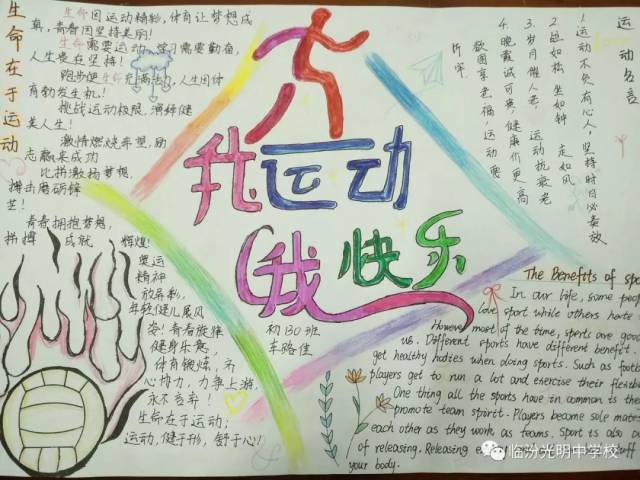 生命在于运动
生命因运动精彩,体育让梦想成
真,青春因坚持美丽!
生命需要运动,学习需要勤奋,
人生贵在坚持!
跑步使生命充满活力,人生因体
育勃发生机!
挑战运动极限,演绎健
美人生!
激情燃烧希望,励
志赢来成功
比拼激扬梦想,
拼击磨砺锋
芒!
青春拥抱梦想,
拼搏成就辉煌!
奥运
精神
放异彩,
年轻健儿展风
姿!青春旋律
健身乐寰,
体育锻炼,齐
心协力,力争上游,
永不言弃!
生命在于运动;
运动,健于行,舒于心!
我运动
我快乐
初130班
车路佳
运动名言
1.运动不负有心人,坚持时日必奏效
2.站如松坐如钟 走如风
3.岁月催人老 运动抗衰老
4.晚霞诚可贵,健康价更高
欲图享老福,运动要
你牢
The Benefits of spo
In our life, some peop
love sport while others hate s
However most of the time, sports are good
us. Different sports have different benefit.
get healthy bodies when doing sports. Such as footba
players get to run a lot and exercise their flexib
One thing all the sports have in common is the
promote team spirit. Players become sole mates
each other as they work as teams. Sport is also a
of releasing. Releasing
your body.
临汾光明中学校